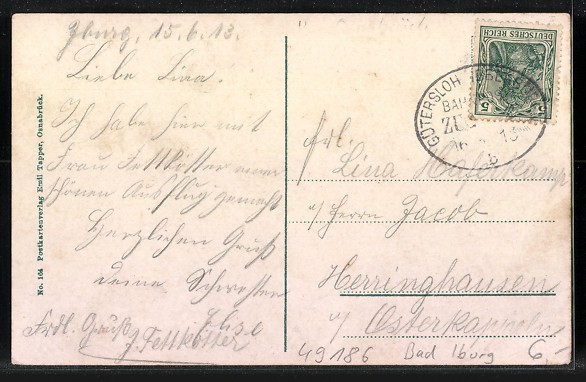 Iburg, 15.6.13.
Liebe Lina.
Ich habe hier mit
Frau Fettkötter einen
schönen Ausflug gemacht
Herzlichen Gruß
deine Schwester
Elise
Frdl. Gruß
J. Fettkötter
No. 164 Postkartenverlag Emil Tapper, Osnabrück.
DEUTSCHES REICH
5 5
GÜTERSLOH
BAH
ZUG
16 13
Frl.
Lina Haferkamp
p/ Herrn Jacob
Herringhausen
p/ Osterkappeln
49186 Bad Iburg 6,-